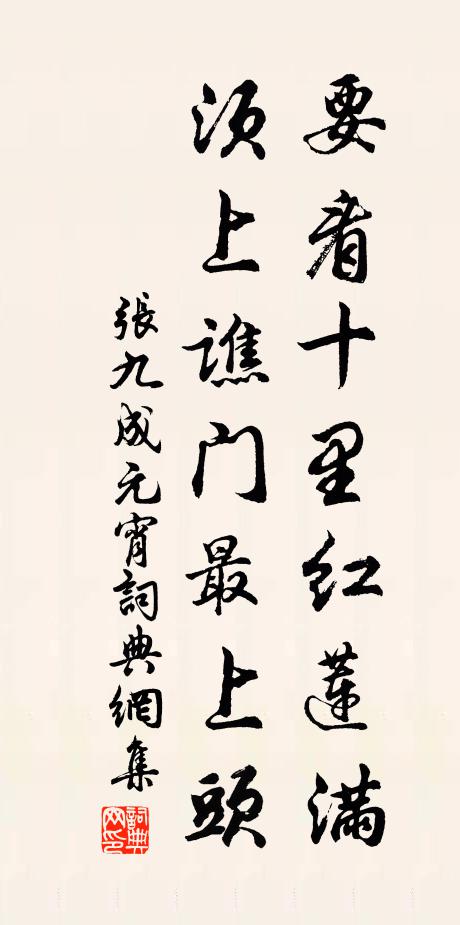 要看十里红莲满
须上谯门最上头
張九成元宵詞典網集
詞典
网印